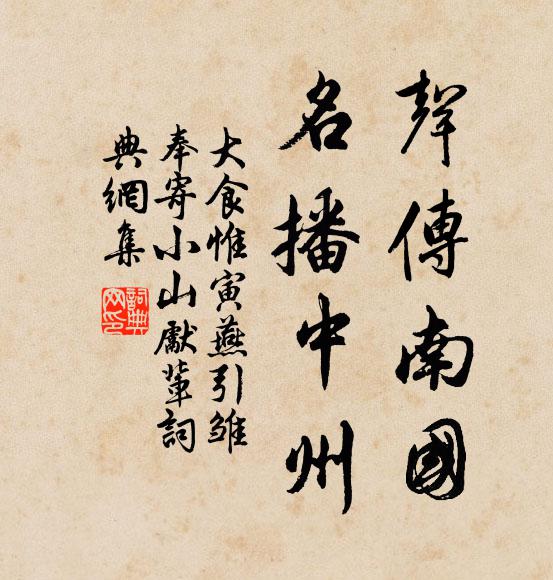 聲傳南國
名播中州
大食惟寅燕引雏
奉寄小山獻輩詞
典網集
詞典网印